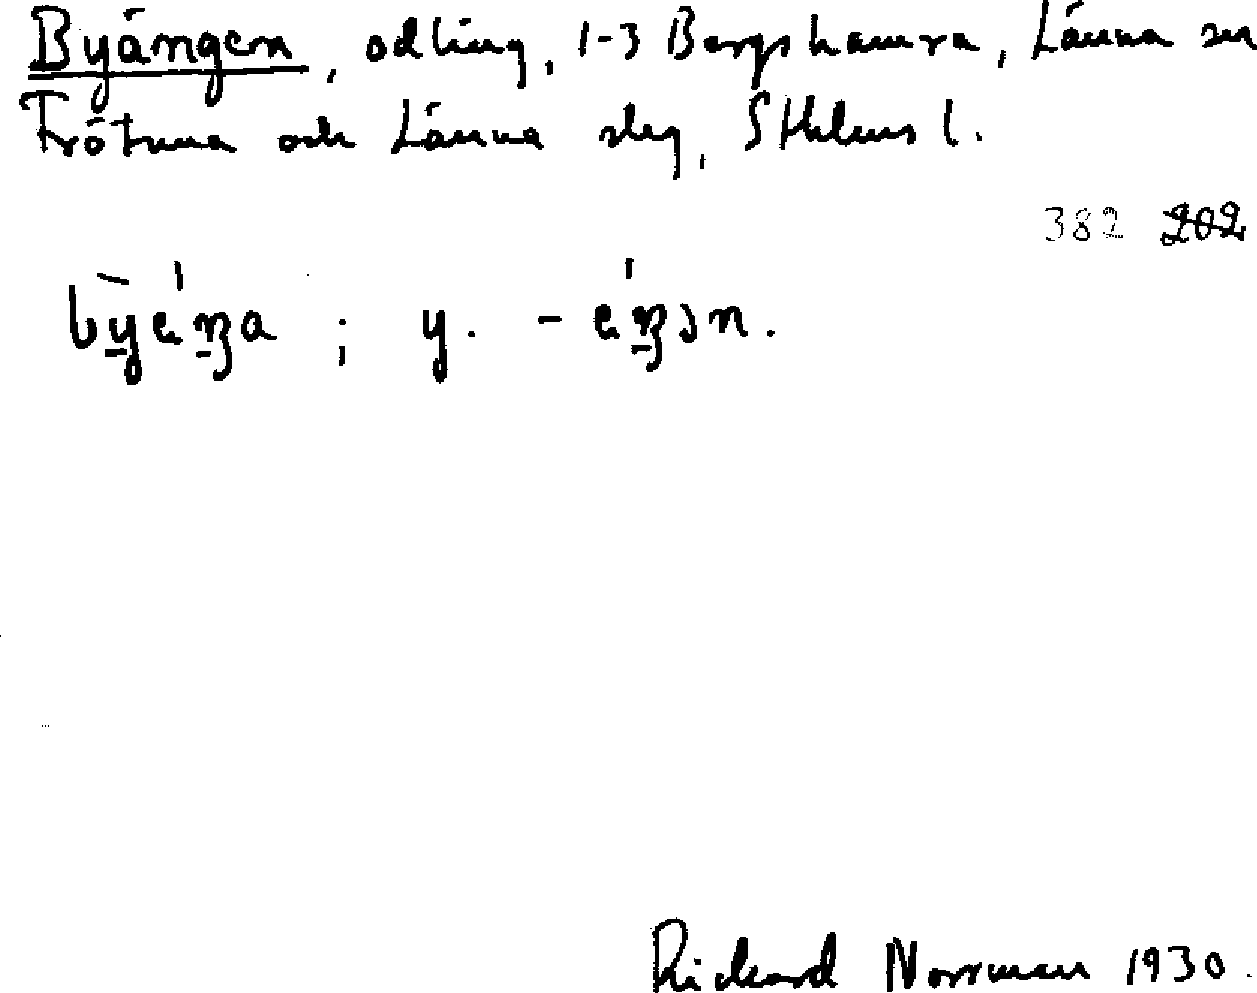 Byängen, odling, 1-3 Bergshamra, Länna sn
Frötuna och Länna slg, Sthlms l.
382 202
; y. -
Rickard Norrman 1930.